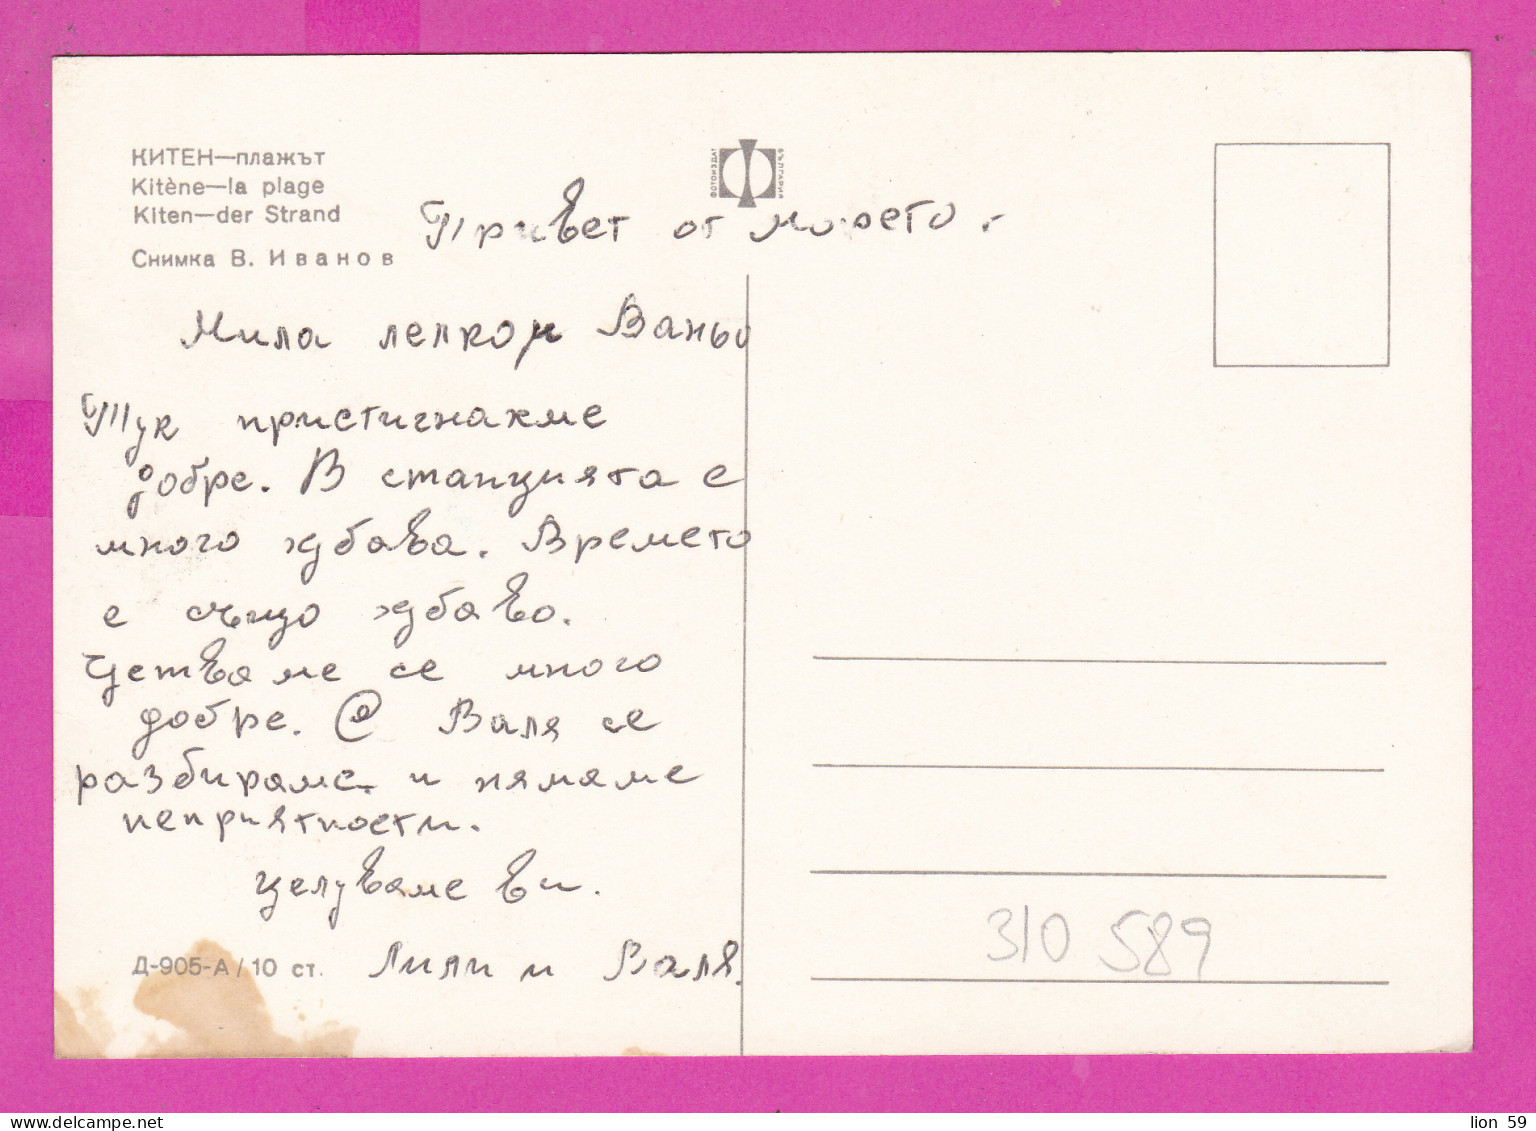 КИТЕН—плажът
Kitène—la plage
Kiten—der Strand
Снимка В. Иванов
ФОТОИЗДАТ
БЪЛГАРИЯ
Привет от морето.
Мила лелко и Ваньо
Тук пристигнахме
добре. В станцията е
много хубаво. Времето
е също хубаво.
Чувстваме се много
добре. С Валя се
разбираме и нямаме
неприятности.
Целуваме ви.
Лили и Валя.
Д-905-А/10 ст.
310 589
lion 59